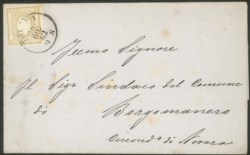 Illmo Signore
Il Sigr Sindaco del Comune
di
Borgomanero
Circond.º di Novara